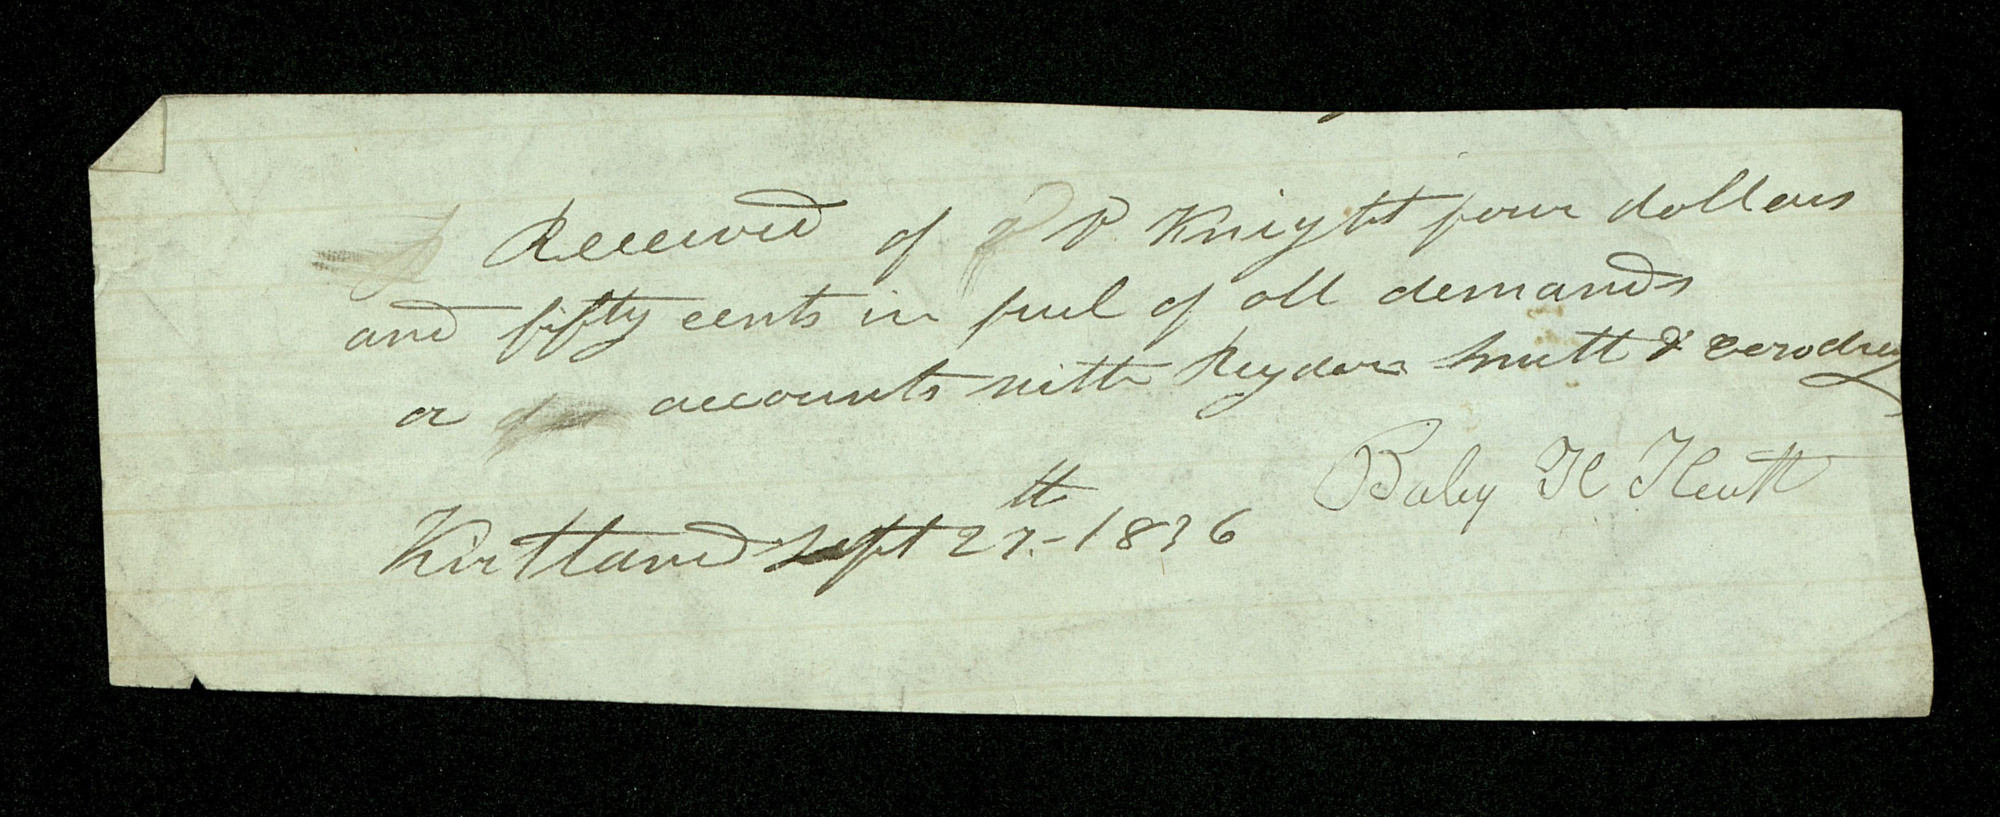 Received of V. Knight four dollars
and fifty cents in full of all demands
or accounts with Rigdon Smith & Cowdrey
Kirtland Sept 27th - 1836